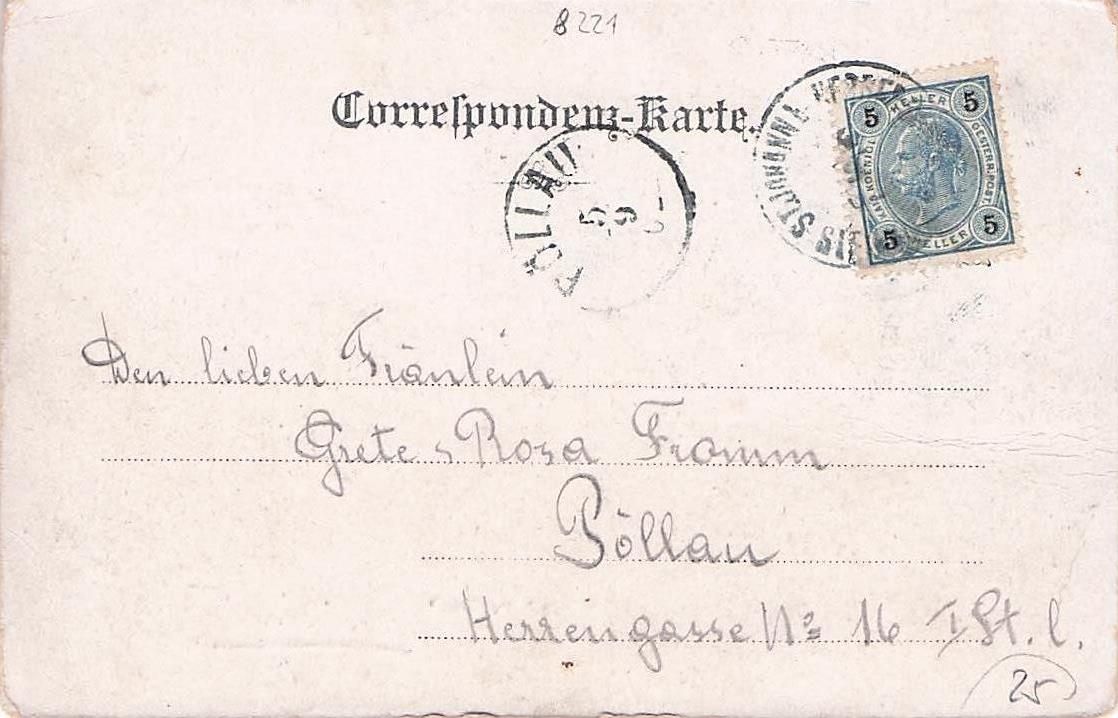 8221
Correſpondenz-Karte.
PÖLLAU
5
9
ST. JOHANN
5 HELLER 5
KAIS. KOENIGL. OESTERR. POST
5 HELLER 5
Den lieben Fräulein
Grete & Rosa Fromm
Pöllau
Herrengasse No 16 I St. l.
25